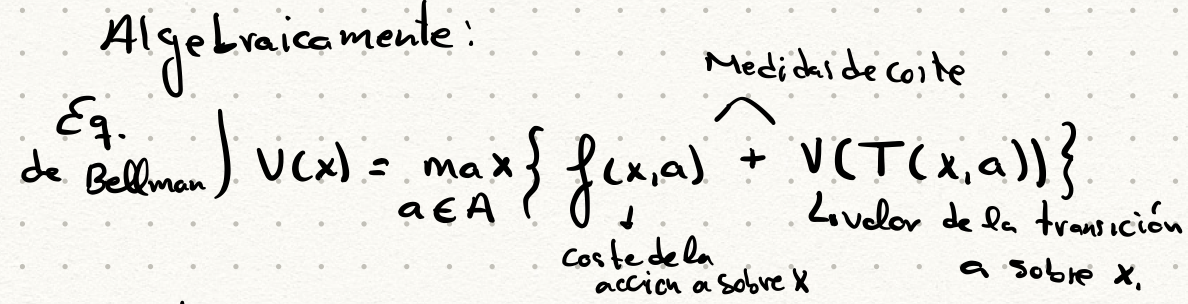 Algebraicamente:
Medidas de coste
Eq.
de Bellman) V(x) = max { f(x,a) + V(T(x,a)) }
a ∈ A
↓
coste de la
acción a sobre x
↳ valor de la transición
a sobre x.